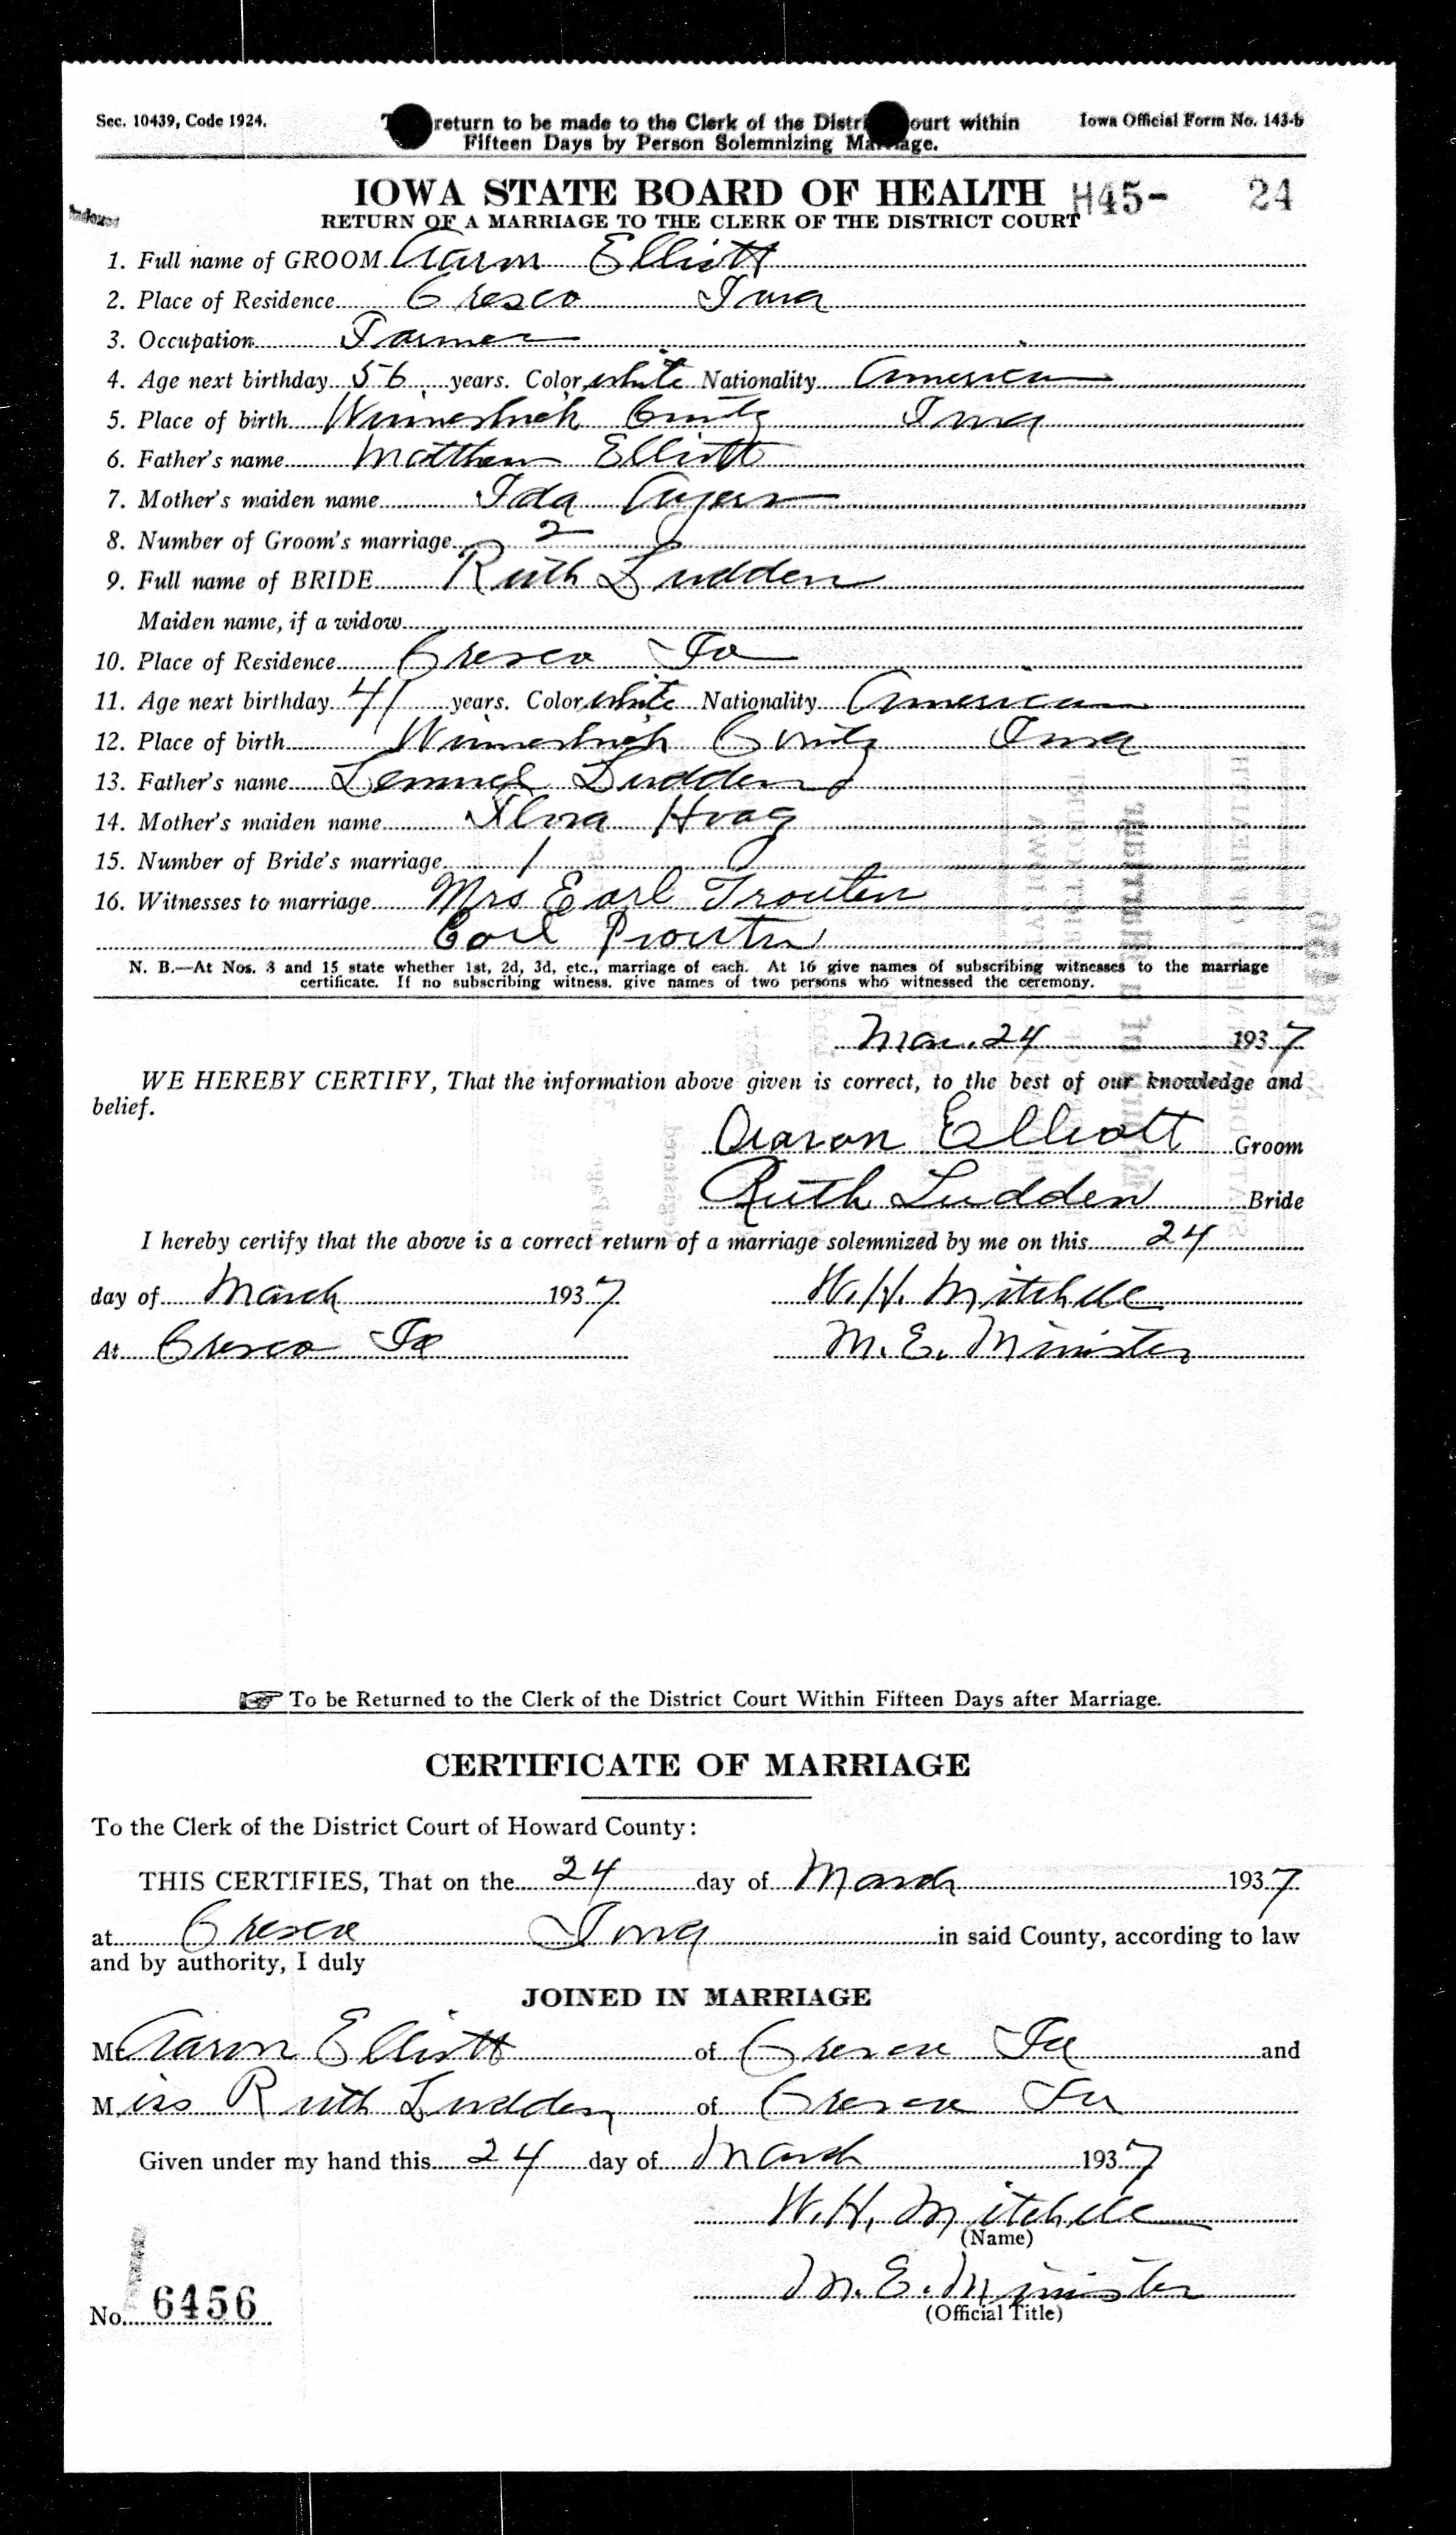 Sec. 10439, Code 1924.
return to be made to the Clerk of the District Court within Fifteen Days by Person Solemnizing Marriage.
Iowa Official Form No. 143-b
IOWA STATE BOARD OF HEALTH H45- 24
Indexed
RETURN OF A MARRIAGE TO THE CLERK OF THE DISTRICT COURT
1. Full name of GROOM Aaron Elliott
2. Place of Residence Cresco Iowa
3. Occupation Farmer
4. Age next birthday 56 years. Color white Nationality American
5. Place of birth Winneshiek County Iowa
6. Father's name Matthew Elliott
7. Mother's maiden name Ida Ayers
8. Number of Groom's marriage 2
9. Full name of BRIDE Ruth Ludden
Maiden name, if a widow
10. Place of Residence Cresco Ia
11. Age next birthday 41 years. Color white Nationality American
12. Place of birth Winneshiek County Iowa
13. Father's name Lemuel Ludden
14. Mother's maiden name Flora Hoag
15. Number of Bride's marriage 1
16. Witnesses to marriage Mrs Earl Trouten
Earl
N. B.—At Nos. 8 and 15 state whether 1st, 2d, 3d, etc., marriage of each. At 16 give names of subscribing witnesses to the marriage
certificate. If no subscribing witness, give names of two persons who witnessed the ceremony.
Mar. 24 1937
WE HEREBY CERTIFY, That the information above given is correct, to the best of our knowledge and
belief.
Aaron Elliott Groom
Ruth Ludden Bride
I hereby certify that the above is a correct return of a marriage solemnized by me on this 24
day of March 1937 W. H. Mitchell
At Cresco Ia M. E. Minister
To be Returned to the Clerk of the District Court Within Fifteen Days after Marriage.
CERTIFICATE OF MARRIAGE
To the Clerk of the District Court of Howard County:
THIS CERTIFIES, That on the 24 day of March 1937
at Cresco Iowa in said County, according to law
and by authority, I duly
JOINED IN MARRIAGE
Mr Aaron Elliott of Cresco Ia and
Miss Ruth Ludden of Cresco Ia
Given under my hand this 24 day of March 1937
W. H. Mitchell
(Name)
M. E. Minister
(Official Title)
No. 6456